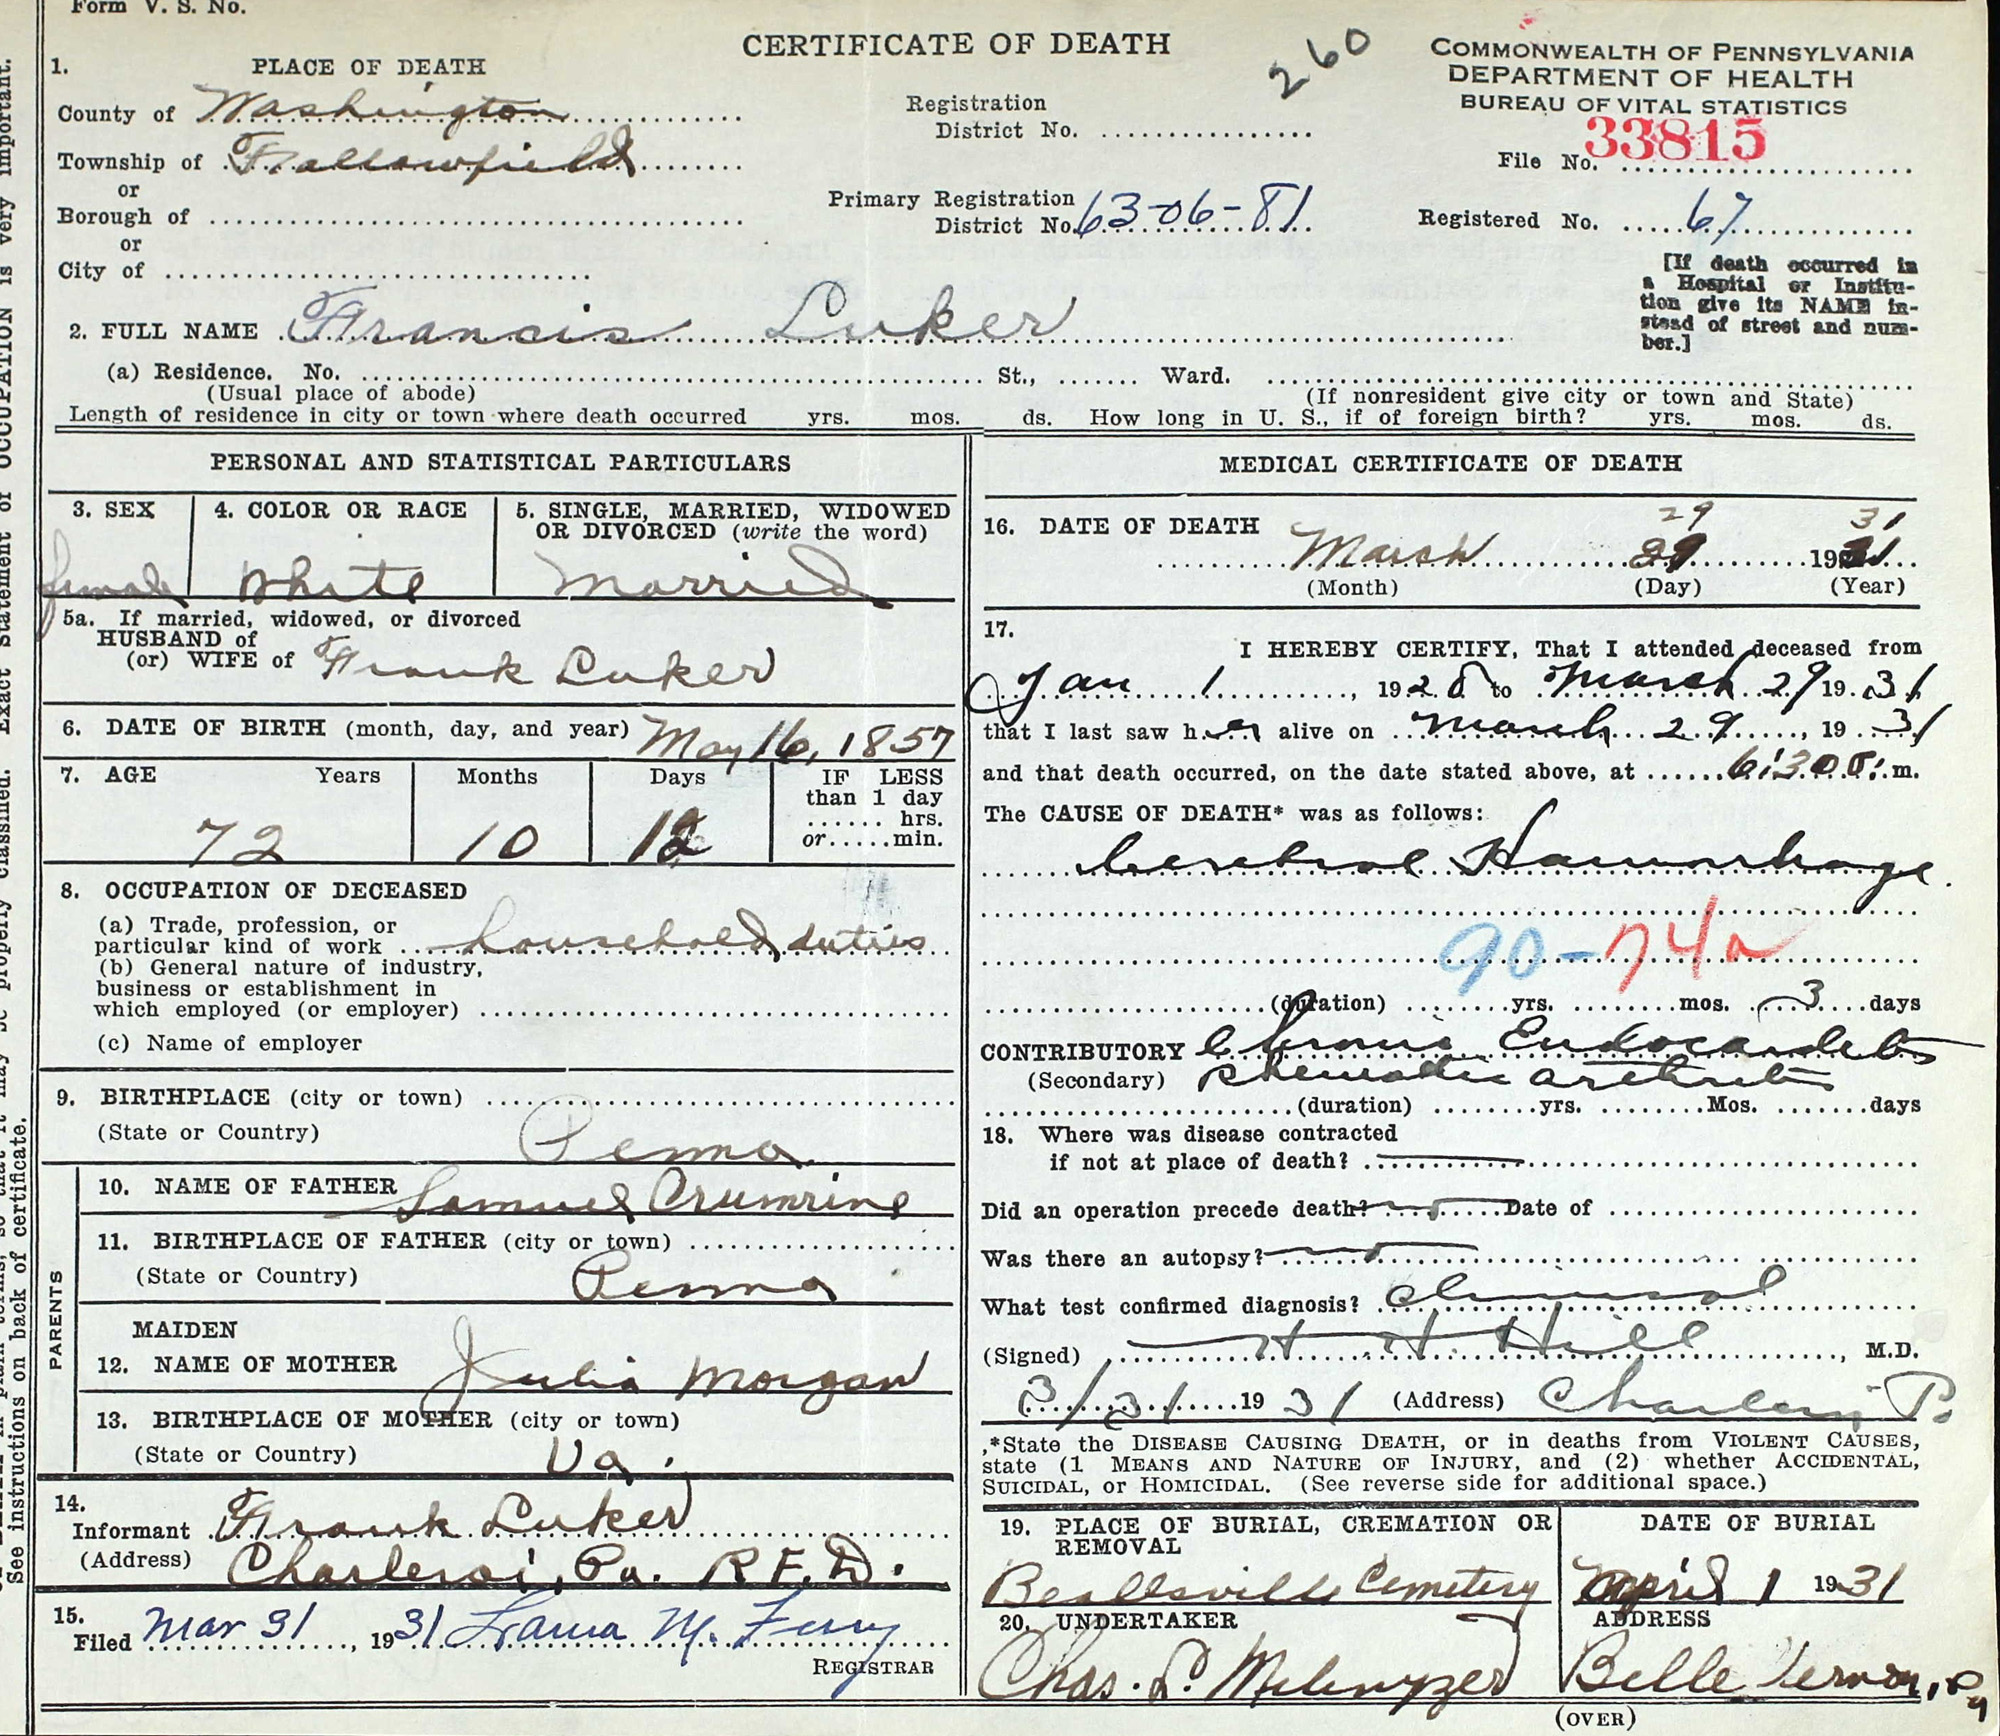 Form V. S. No.
CERTIFICATE OF DEATH
260
COMMONWEALTH OF PENNSYLVANIA
DEPARTMENT OF HEALTH
BUREAU OF VITAL STATISTICS
1. PLACE OF DEATH
County of Washington
Township of Fallowfield
or
Borough of
or
City of
Registration
District No.
Primary Registration
District No. 63-06-81
File No. 33815
Registered No. 67
[If death occurred in
a Hospital or Institu-
tion give its NAME in-
stead of street and num-
ber.]
2. FULL NAME Francis Luker
(a) Residence. No. St., Ward.
(Usual place of abode) (If nonresident give city or town and State)
Length of residence in city or town where death occurred yrs. mos. ds. How long in U. S., if of foreign birth? yrs. mos. ds.
PERSONAL AND STATISTICAL PARTICULARS
3. SEX
female
4. COLOR OR RACE
White
5. SINGLE, MARRIED, WIDOWED
OR DIVORCED (write the word)
Married
5a. If married, widowed, or divorced
HUSBAND of
(or) WIFE of Frank Luker
6. DATE OF BIRTH (month, day, and year) May 16, 1857
7. AGE Years Months Days
72 10 12
IF LESS
than 1 day
hrs.
or min.
8. OCCUPATION OF DECEASED
(a) Trade, profession, or
particular kind of work household duties
(b) General nature of industry,
business or establishment in
which employed (or employer)
(c) Name of employer
9. BIRTHPLACE (city or town)
(State or Country) Penna
PARENTS
10. NAME OF FATHER Samuel Crumrine
11. BIRTHPLACE OF FATHER (city or town)
(State or Country) Penna
MAIDEN
12. NAME OF MOTHER Julia Morgan
13. BIRTHPLACE OF MOTHER (city or town)
(State or Country) Va.
14.
Informant Frank Luker
(Address) Charleroi, Pa. R.F.D.
15.
Filed Mar 31, 1931 Laura M. Ferry
REGISTRAR
MEDICAL CERTIFICATE OF DEATH
29 31
16. DATE OF DEATH March 29 1931
(Month) (Day) (Year)
17.
I HEREBY CERTIFY, That I attended deceased from
Jan 1, 1928 to March 29 1931
that I last saw her alive on March 29, 1931
and that death occurred, on the date stated above, at 6:30 m.
The CAUSE OF DEATH* was as follows:
Cerebral Hamorrhage.
90-74a
(duration) yrs. mos. 3 days
CONTRIBUTORY Chronic Endocarditis
(Secondary) Rheumatic arthritis
(duration) yrs. Mos. days
18. Where was disease contracted
if not at place of death?
Did an operation precede death? no Date of
Was there an autopsy? no
What test confirmed diagnosis? Clinical
(Signed) H. H. Hill, M.D.
3/31 1931 (Address) Charleroi P.
*State the DISEASE CAUSING DEATH, or in deaths from VIOLENT CAUSES,
state (1 MEANS AND NATURE OF INJURY, and (2) whether ACCIDENTAL,
SUICIDAL, or HOMICIDAL. (See reverse side for additional space.)
19. PLACE OF BURIAL, CREMATION OR
REMOVAL
Beallsville Cemetery
DATE OF BURIAL
April 1 1931
20. UNDERTAKER
Chas. L. Melenyzer
ADDRESS
Belle Vernon, Pa
(OVER)
See instructions on back of certificate.
Exact statement of OCCUPATION is very important.